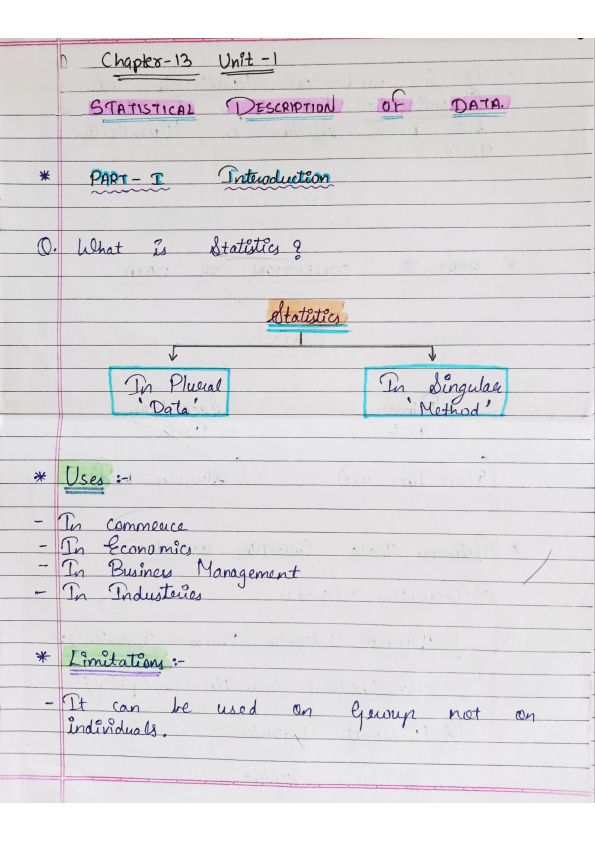 Chapter-13 Unit-1
STATISTICAL DESCRIPTION OF DATA.
* PART-I Introduction
Q. What is Statistics?
Statistics
In Plural
'Data'
In Singular
'Method'
* Uses :-
- In commerce
- In Economics
- In Business Management
- In Industeries
* Limitations :-
- It can be used on Group not on
individuals.